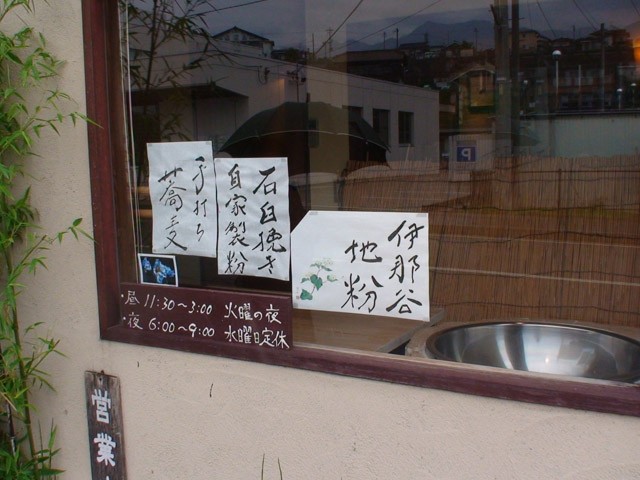 手打ち
蕎麦
石臼挽き
自家製粉
伊那谷
地粉
・昼 11:30～3:00 火曜の夜
・夜 6:00～9:00 水曜日定休
営業
P